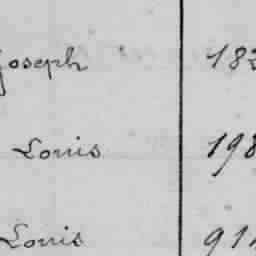 Joseph 182
Louis 198
Louis 914